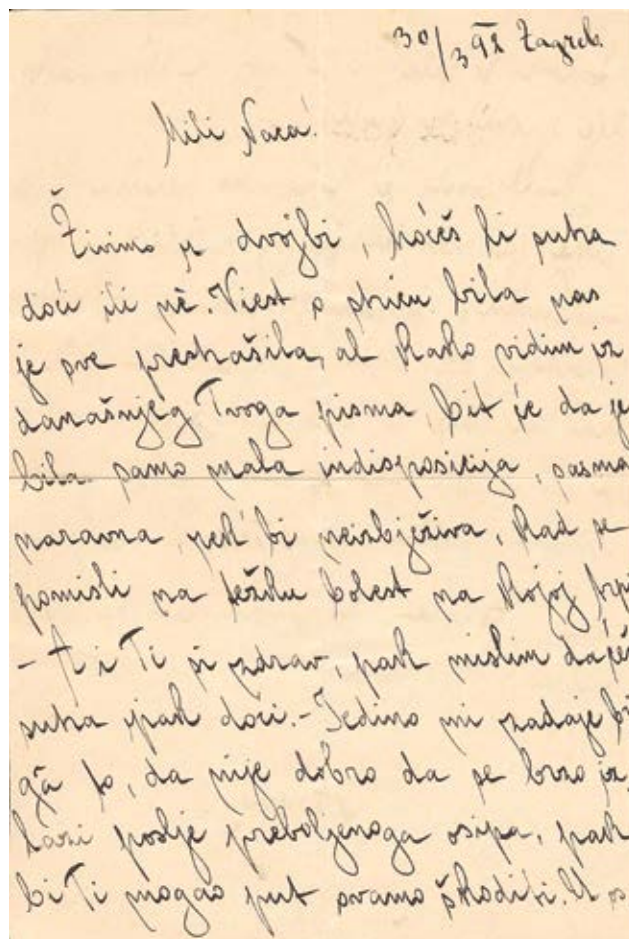 30/3 92 Zagreb.
Mili Naca!
Živimo u dvojbi, hoćeš li sutra
doći ili nè. Viest o stricu bila nas
je sve prestrašila, al kako vidim iz
današnjeg Tvoga pisma, bit će da je
bila samo mala indispozicija, sasma
naravna, rek' bi neizbježiva, kad se
pomisli na težku bolest na kojoj trpi
- A i Ti si zdrav, pak mislim da ćeš
sutra ipak doći. - Jedino mi zadaje bri
gâ to, da nije dobro da se brzo iz
lazi poslje preboljenoga osipa, pak
bi Ti mogao put ovamo škoditi. U os